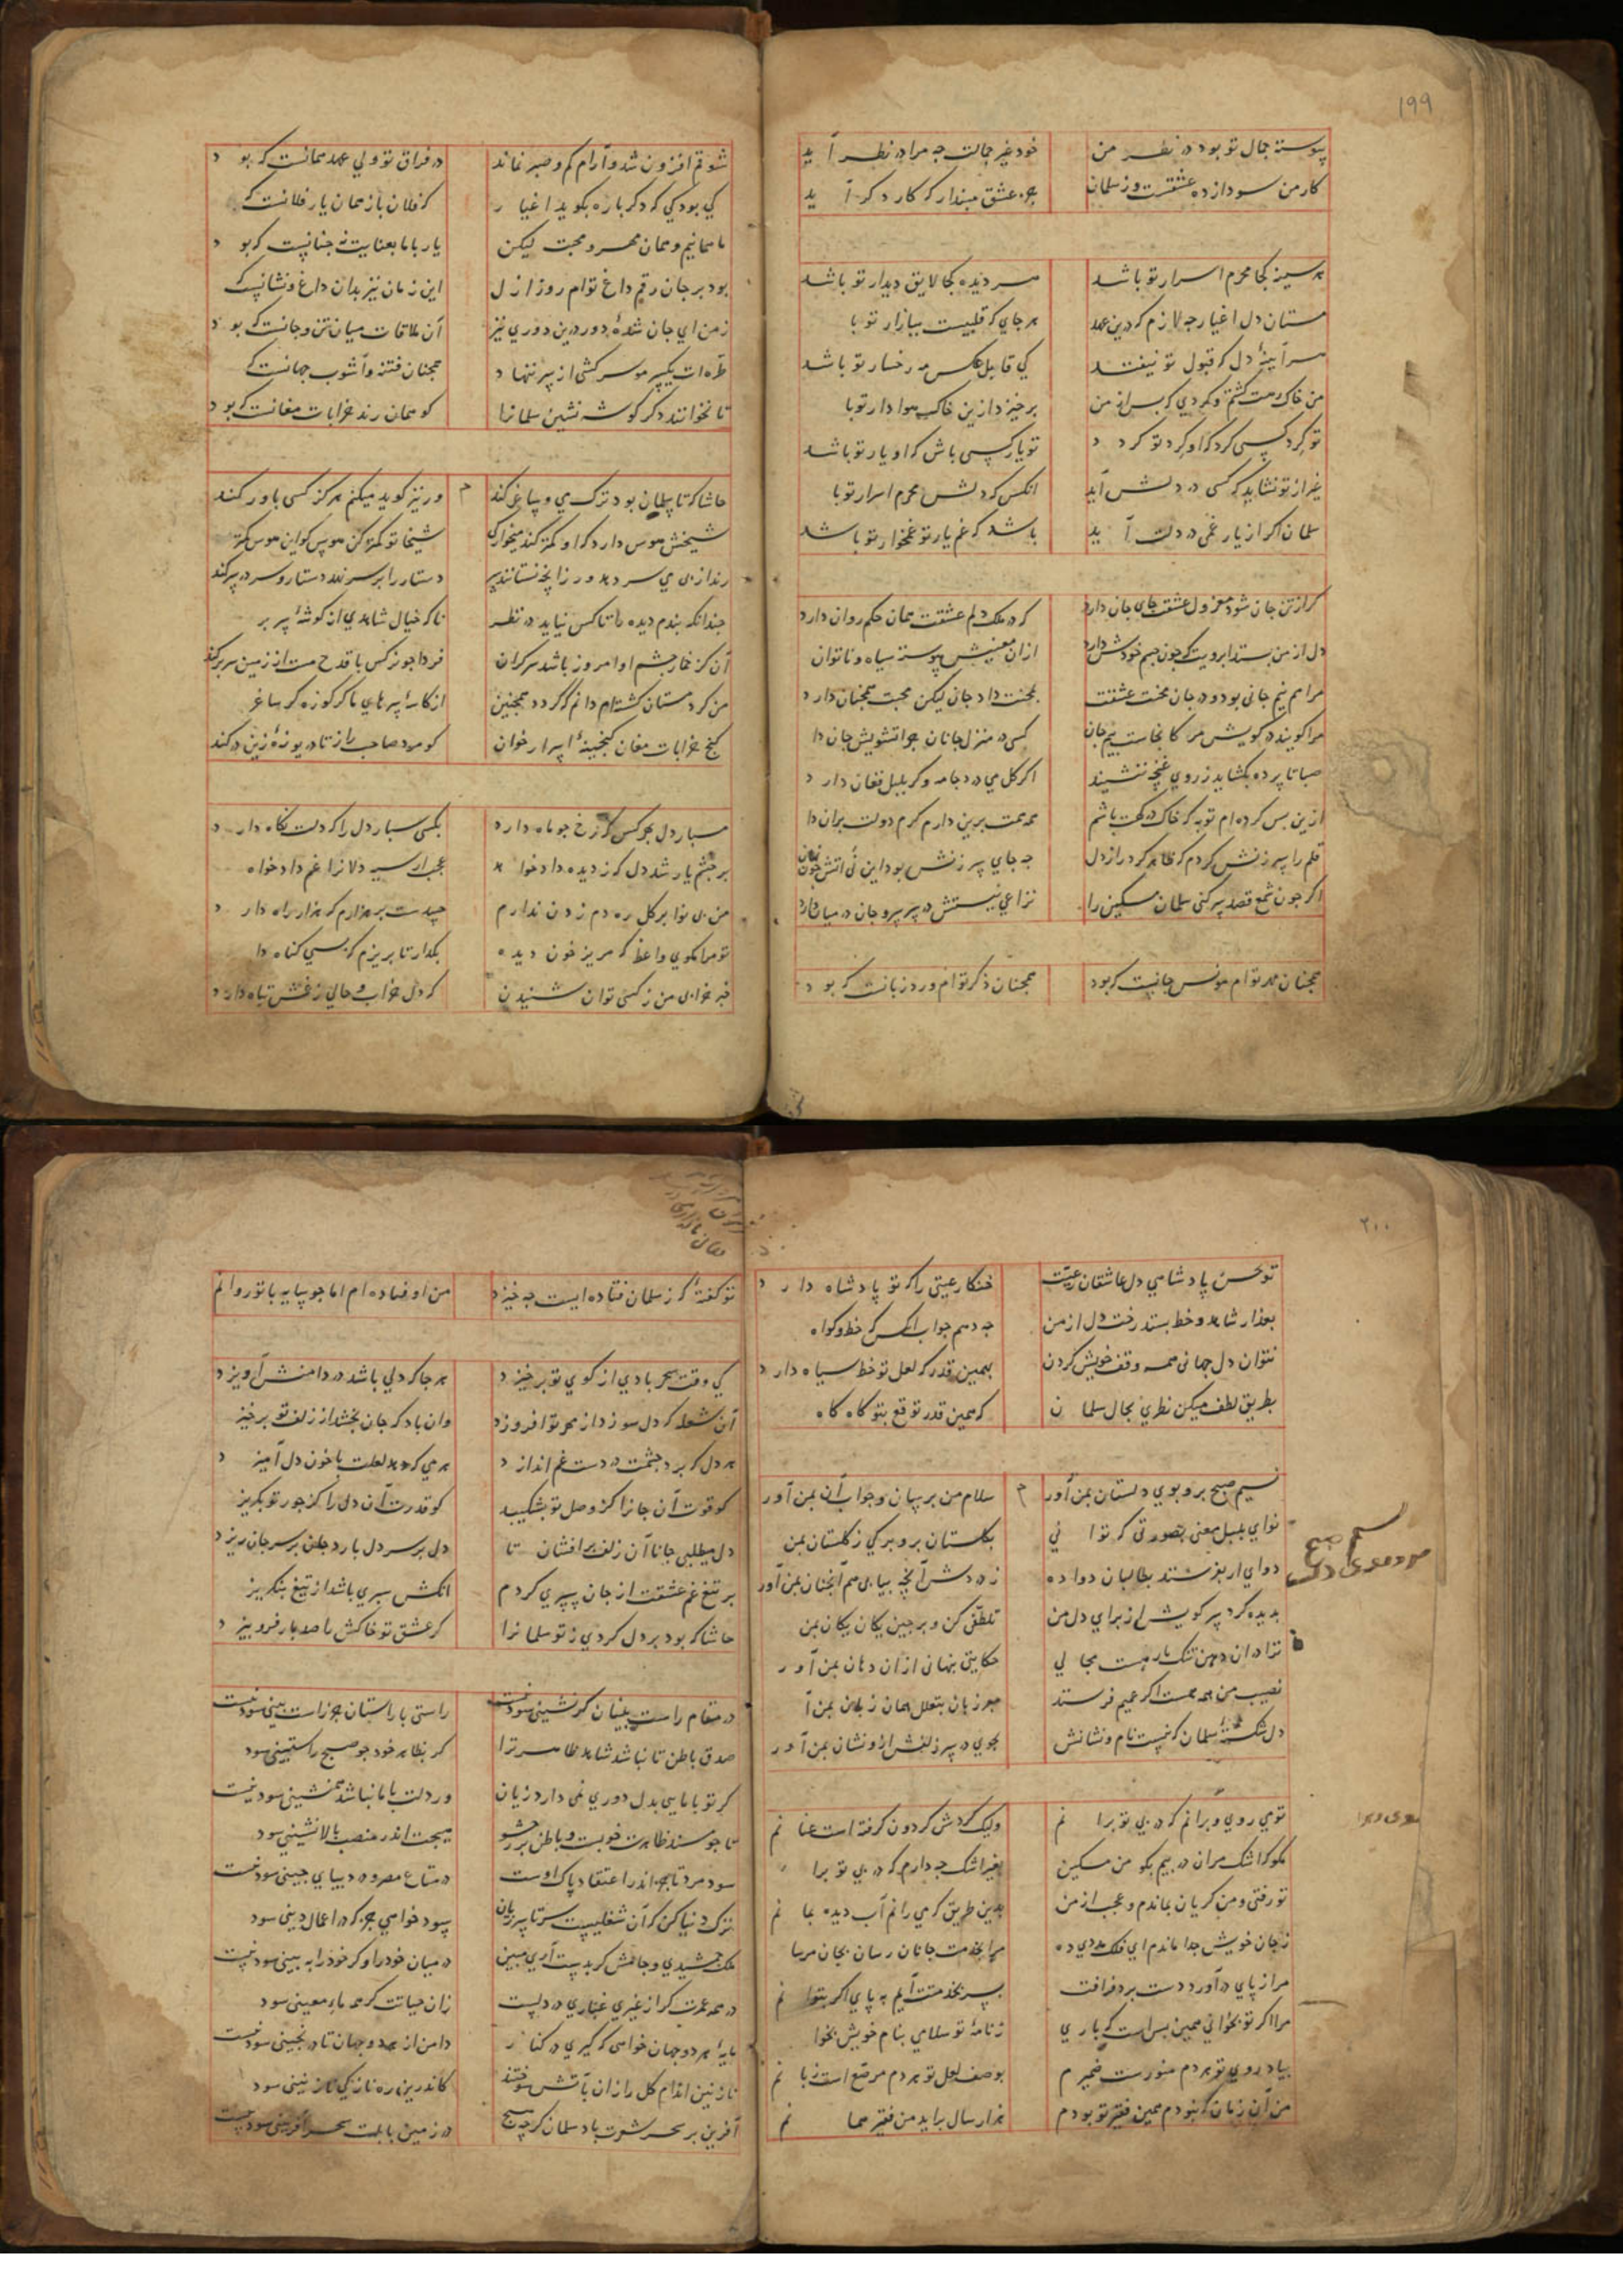 ۱۹۹
پیوسته جمال تو بود در نظر من خود غیر جمالت چه مرا در نظر آید
کار من سودازده عشقست و ز سلمان جز عشق مپندار که کار دکر آید
هر سینه کجا محرم اسرار تو باشد هر دیده کجا لایق دیدار تو باشد
مستان دل اغیار چه لازم که درین عهد هر جای که قلبیست ببازار تو با
هر آینهٔ دل که قبول تو نیفتد کی قابل عکس مه رخسار تو باشد
من خاک رهت کشتم و کردی که پس از من برخیزد ازین خاک هوادار تو با
تو کرد کسی کرد که او کرد تو کردد تو یار کسی باش که او یار تو باشد
غیر از تو نشاید که کسی در دلش آید انکس که دلش محرم اسرار تو با
سلمان اکر از یار غمی در دلت آید باشد که غم یار تو غمخوار تو باشد
کر از تن جان شود معزول عشقت جای جان دارد که در ملک دلم عشقت همان حکم روان دارد
دل از من بستد ابرویت که چون چشم خودش دارد ازان معنیش پیوسته سیاه و ناتوان
مرا هم نیم جانی بود و در جان محنت عشقت بمحنت داد جان لیکن محبت همچنان دارد
مرا کویند در کویش مرو کانجاست بیم جان کسی در منزل جانان چرا تشویش جان دا
صبا تا پرده بکشاید ز روی غنچه ننشیند اکر کل می درد جامه و کر بلبل فغان دارد
ازین بس کرده‌ام توبه که خاک درکهت باشم همه همت برین دارم کرم دولت بران دا
قلم را سرزنش کردم که ظاهر کرد راز دل چه جای سرزنش بود این نی آتش چون زبان
اکر چون شمع قصد سر کنی سلمان مسکین را نزاعی نیستش در سر سر و جان در میان دارد
همچنان مهر توام مونس جانست که بود همچنان ذکر توام ورد زبانست که بود
شوقم افزون شد و آرام کم و صبر نماند در فراق تو ولی عهد همانست که بود
کی بود کی که دکرباره بکوید اغیار که فلان باز همان یار فلانست که
ما همانیم و همان مهر و محبت لیکن یار با ما بعنایت نه چنانست که بود
بود بر جان رقم داغ توام روز ازل این زمان نیز بدان داغ و نشانست که
ز من ای جان شدهٔ دور درین دوری نیز آن ملاقات میان تن و جانست که بود
طره‌ات یکسر مو سرکشی از سر ننهاد همچنان فتنه و آشوب جهانست که
تا نخوانند دکر کوشه نشین سلمانرا کو همان رند خرابات مغانست که بود
حاشا که تا سلمان بود ترک می و ساغر کند ور نیز کوید میکنم هرکز کسی باور کند
شیخش هوس دارد که او کمتر کند میخوارکی شیخا تو کمتر کن هوس کو این هوس کمتر
رند از پی می سر دهد ور زانچه نستانند سر دستار را بر سر نهد دستار و سر در سر کند
چندانکه بندم دیده را تا کس نیاید در نظر ناکه خیال شاهدی از کوشهٔ سر بر
آن کز خمار چشم او امروز باشد سرکران فردا چو نرکس با قدح مست از زمین سر بر کند
من کرد مستان کشته‌ام دانم که کردد همچنین از کاسهٔ سرهای ما کر کوزه کر ساغر
کنج خرابات مغان کنجینهٔ اسرار خوان کو مرد صاحب راز تا دریوزهٔ زین در کند
مسپار دل بهر کس که رخ چو ماه دارد بکسی سپار دل را که دلت نگاه دارد
بر چشم یار شد دل که ز دیده دادخواهد عجب ار سیه دلانرا غم دادخواه
من بی نوا بر کل ره دم زدن ندارم چه دست بر هزارم که هزار راه دارد
تو مرا مکوی واعظ که مریز خون دیده بکذار تا بریزم که بسی کناه دا
خبر خرابی من ز کسی توان شنیدن که دل خراب و حالی ز غمش تباه دارد
۲۰۰
تو بحسن پادشاهی دل عاشقان رعیت خنک ار عیتی را که تو پادشاه دارد
بعذار شاهد و خط بستد رخت دل از من چه دهم جواب انکس که خط و کواه
نتوان دل جهانی همه وقف خویش کردن بهمین قدر که لعل تو خط سیاه دارد
بطریق لطف میکن نظری بحال سلمان که همین قدر توقع بتو کاه کاه
نسیم صبح برو بوی دلستان بمن آور سلام من برسان و جواب آن بمن آور
نوای بلبل معنی بصورتی که تو دانی بکلستان برو برکی ز کلستان بمن
دوای ار بفرستند بطالبان دوا ده ز دردش آنچه بیابی هم آنچنان بمن آور
بدیده کرد سر کویش از برای دل من تلطفی کن و برچین یکان یکان بمن
ترا دران دهن تنک بار هست مجالی حکایتی نهانی ازان دهان بمن آور
نصیب من همه همت اکر عمیم فرستد
دل شکستهٔ سلمان که نیست نام و نشانش بجوی در سر زلفش ازو نشان بمن آور
نسیم صبح
توی روی و برانم که در پی تو برانم ولیک کردش کردون کرفته است عنانم
مکو که اشک مران در پیم بکو من مسکین بغیر اشک چه دارم که در پی تو برا
تو رفتی و من کریان بماندم و عجب از من بدین طریق که می رانم آب دیده بمانم
ز جان خویش جدا مانده‌ام ای فلک مددی ده مرا بخدمت جانان رسان بجان مرسا
مرا ز پای درآورد دست برد فراقت بسر بخدمتت آیم به پای اکر بتوانم
مرا اکر تو نخوانی همین بس است که باری ز نامهٔ تو سلامی بنام خویش بخوا
بیاد روی تو هر دم منورست ضمیرم بوصف لعل تو هر دم مرصع است زبانم
من آن زمان که نبودم همین فقیر تو بودم هزار سال برآید من فقیر همانم
تو کفتهٔ که ز سلمان فتاده ایست چه خیزد من اوفتاده‌ام اما چو سایه با تو روانم
کی وقت سحر بادی از کوی تو برخیزد هر جا که دلی باشد در دامنش آویزد
آن شعله که دل سوزد از مهر تو افروزد وان باد که جان بخشد از زلف تو برخیز
هر دل که برد چشمت در دست غم اندازد هر می که دهد لعلت با خون دل آمیزد
کو قوت آن جانرا کز وصل تو بشکیبد کو قدرت آن دل را کز جور تو بکریز
دل میطلبی جانا آن زلف برافشان تا دل بر سر دل بارد جان بر سر جان ریزد
بر تیغ غم عشقت از جان سپری کردم انکش سپری باشد از تیغ بنکریز
حاشا که بود بر دل کردی ز تو سلمانرا کر عشق تو خاکش را صد بار فرو بیزد
در مقام راست بینان کژ نشینی سود نیست راستی با راستان جز راست بینی سود نیست
صدق باطن تا نباشد شاهد ظاهر ترا کر بظاهر خود چو صبح راستینی سود
کر تو با مایی بدل دوری نمی دارد زیان ور دلت با ما نباشد همنشینی سود نیست
هیچت اندر منصب بالانشینی سود
سود مرد تاجر اندر اعتقاد پاک اوست در متاع مصر و در دیبای چینی سود نیست
ترک دنیا کن که آن شغلیست سر تا سر زیان سود خواهی جز که در اعمال دینی سود
ملک جمشیدی و جامش کر بدست آری مبین در میان خود را و کر خود را به بینی سود نیست
در همه عمرت کر از غیری غباری در دلست زان حیاتت کر همه ماء معینی سود
مایهٔ هر دو جهان خواهی که کیری در کنار دامن از هر دو جهان تا در نچینی سود نیست
نازنین اندام کل را زان بآتش سوختند کاندرین ره نازکی و نازنینی سود
آفرین بر سحر شعرت باد سلمان کرچه هیچ در زمین بابلت سحر آفرینی سود نیست